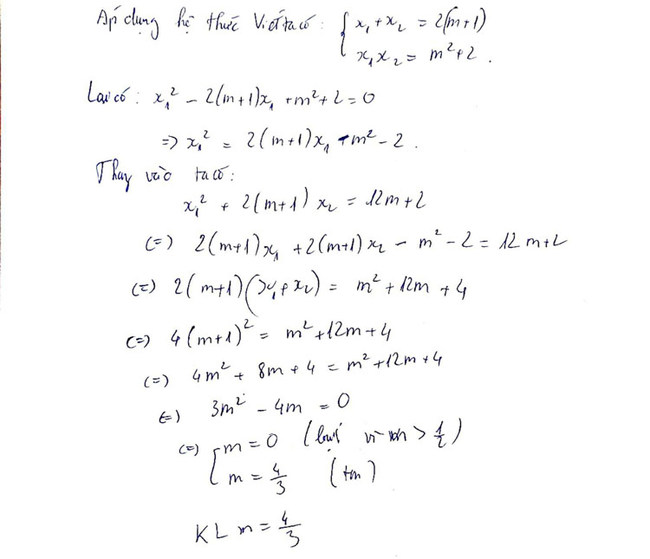 Áp dụng hệ thức Viét ta có: { x₁ + x₂ = 2(m+1)
x₁x₂ = m² + 2.
Lại có: x₁² - 2(m+1)x₁ + m² + 2 = 0
=> x₁² = 2(m+1)x₁ - m² - 2.
Thay vào ta có:
x₁² + 2(m+1)x₂ = 12m + 2
(=) 2(m+1)x₁ + 2(m+1)x₂ - m² - 2 = 12m + 2
(=) 2(m+1)(x₁ + x₂) = m² + 12m + 4
(=) 4(m+1)² = m² + 12m + 4
(=) 4m² + 8m + 4 = m² + 12m + 4
(=) 3m² - 4m = 0
(=) [ m = 0 (loại vì m > 1/2)
m = 4/3 (tm)
KL m = 4/3